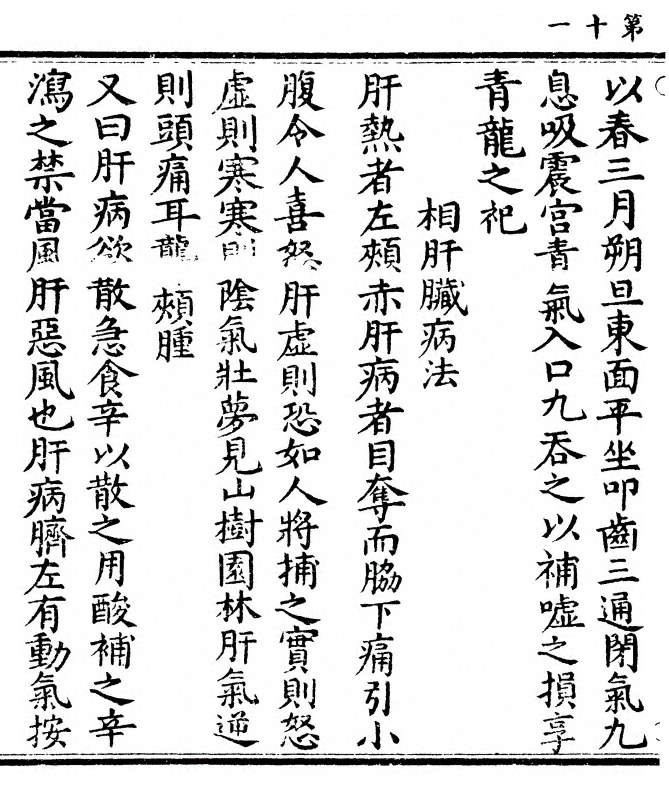 第十一
以春三月朔旦東面平坐叩齒三通閉氣九
息吸震宮青氣入口九吞之以補噓之損享
青龍之祀
相肝臟病法
肝熱者左頰赤肝病者目奪而脇下痛引小
腹令人喜怒肝虛則恐如人將捕之實則怒
虛則寒寒則陰氣壯夢見山樹園林肝氣逆
則頭痛耳聾頰腫
又曰肝病欲散急食辛以散之用酸補之辛
瀉之禁當風肝惡風也肝病臍左有動氣按